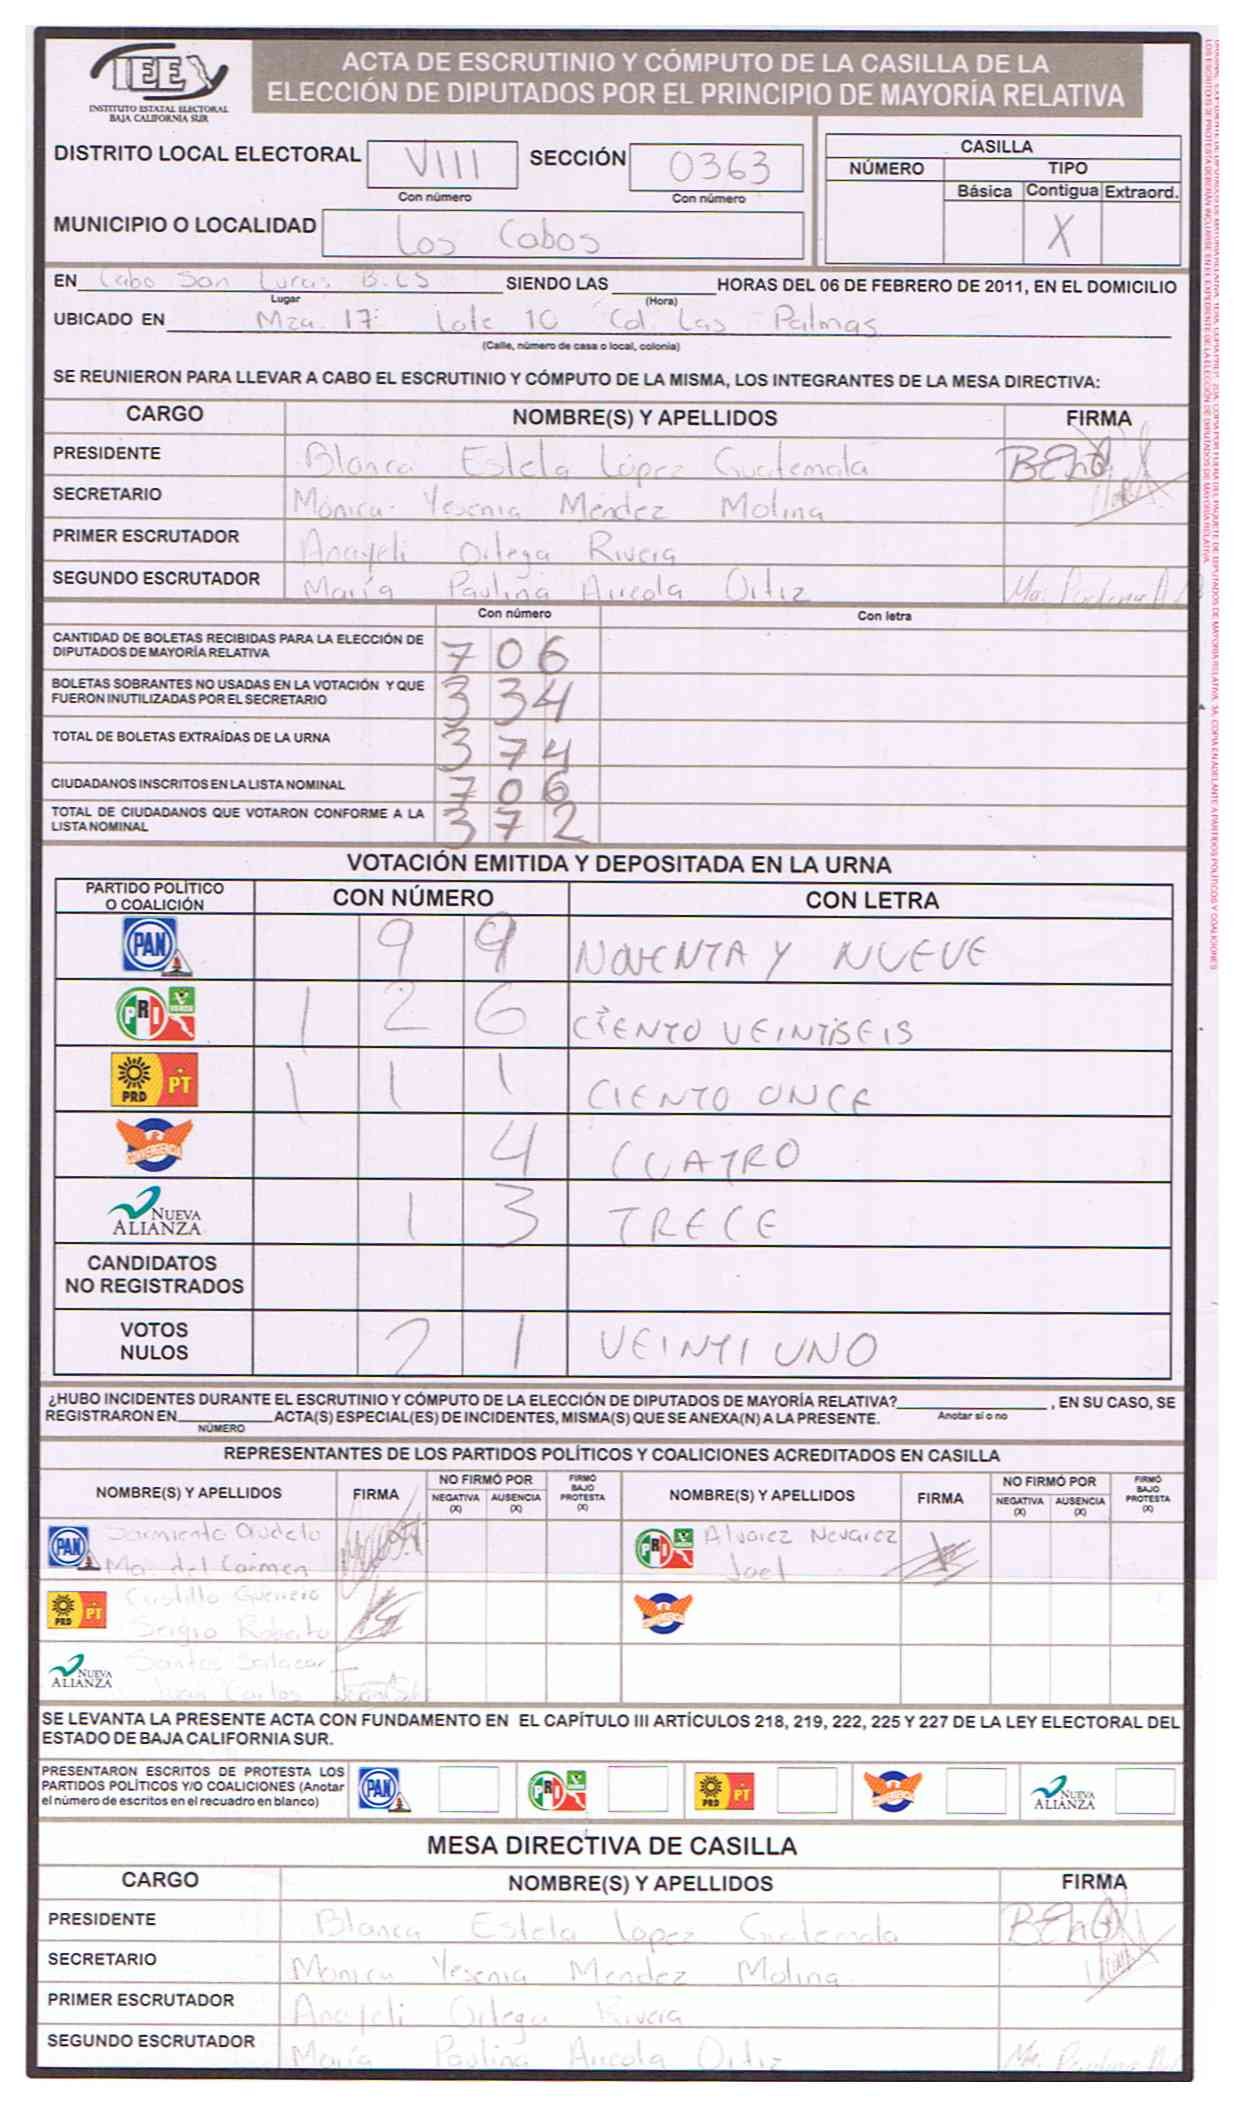 IEE
INSTITUTO ESTATAL ELECTORAL
BAJA CALIFORNIA SUR
ACTA DE ESCRUTINIO Y CÓMPUTO DE LA CASILLA DE LA
ELECCIÓN DE DIPUTADOS POR EL PRINCIPIO DE MAYORÍA RELATIVA
DISTRITO LOCAL ELECTORAL VIII SECCIÓN 0363
Con número Con número
CASILLA
NÚMERO TIPO
Básica Contigua Extraord.
X
MUNICIPIO O LOCALIDAD Los Cabos
EN Cabo San Lucas B.C.S SIENDO LAS HORAS DEL 06 DE FEBRERO DE 2011, EN EL DOMICILIO
Lugar (Hora)
UBICADO EN Mza. 17 Lote 10 Col. Las Palmas
(Calle, número de casa o local, colonia)
SE REUNIERON PARA LLEVAR A CABO EL ESCRUTINIO Y CÓMPUTO DE LA MISMA, LOS INTEGRANTES DE LA MESA DIRECTIVA:
CARGO NOMBRE(S) Y APELLIDOS FIRMA
PRESIDENTE Blanca Estela López Guatemala
SECRETARIO Mónica Yesenia Méndez Molina
PRIMER ESCRUTADOR Anayeli Ortega Rivera
SEGUNDO ESCRUTADOR María Paulina Aureola Ortiz
Con número Con letra
CANTIDAD DE BOLETAS RECIBIDAS PARA LA ELECCIÓN DE
DIPUTADOS DE MAYORÍA RELATIVA 706
BOLETAS SOBRANTES NO USADAS EN LA VOTACIÓN Y QUE
FUERON INUTILIZADAS POR EL SECRETARIO 334
TOTAL DE BOLETAS EXTRAÍDAS DE LA URNA 374
CIUDADANOS INSCRITOS EN LA LISTA NOMINAL 706
TOTAL DE CIUDADANOS QUE VOTARON CONFORME A LA
LISTA NOMINAL 372
VOTACIÓN EMITIDA Y DEPOSITADA EN LA URNA
PARTIDO POLÍTICO
O COALICIÓN CON NÚMERO CON LETRA
PAN 9 9 NOVENTA Y NUEVE
PRI VERDE 1 2 6 CIENTO VEINTISEIS
PRD PT 1 1 1 CIENTO ONCE
CONVERGENCIA 4 CUATRO
NUEVA
ALIANZA 1 3 TRECE
CANDIDATOS
NO REGISTRADOS
VOTOS
NULOS 2 1 VEINTI UNO
¿HUBO INCIDENTES DURANTE EL ESCRUTINIO Y CÓMPUTO DE LA ELECCIÓN DE DIPUTADOS DE MAYORÍA RELATIVA? , EN SU CASO, SE
REGISTRARON EN ACTA(S) ESPECIAL(ES) DE INCIDENTES, MISMA(S) QUE SE ANEXA(N) A LA PRESENTE. Anotar sí o no
NÚMERO
REPRESENTANTES DE LOS PARTIDOS POLÍTICOS Y COALICIONES ACREDITADOS EN CASILLA
NOMBRE(S) Y APELLIDOS FIRMA NO FIRMÓ POR NEGATIVA (X) AUSENCIA (X) FIRMÓ BAJO PROTESTA (X) NOMBRE(S) Y APELLIDOS FIRMA NO FIRMÓ POR NEGATIVA (X) AUSENCIA (X) FIRMÓ BAJO PROTESTA (X)
PAN Sarmiento PRI Alvarez Nevarez
Ma. del Carmen Joel
PRD PT Castillo Guerrero CONVERGENCIA
Sergio Roberto
NUEVA ALIANZA Santos Salazar
Juan Carlos
SE LEVANTA LA PRESENTE ACTA CON FUNDAMENTO EN EL CAPÍTULO III ARTÍCULOS 218, 219, 222, 225 Y 227 DE LA LEY ELECTORAL DEL
ESTADO DE BAJA CALIFORNIA SUR.
PRESENTARON ESCRITOS DE PROTESTA LOS
PARTIDOS POLÍTICOS Y/O COALICIONES (Anotar
el número de escritos en el recuadro en blanco) PAN PRI PRD PT CONVERGENCIA NUEVA ALIANZA
MESA DIRECTIVA DE CASILLA
CARGO NOMBRE(S) Y APELLIDOS FIRMA
PRESIDENTE Blanca Estela Lopez Guatemala
SECRETARIO Monica Yesenia Mendez Molina
PRIMER ESCRUTADOR Anayeli Ortega Rivera
SEGUNDO ESCRUTADOR María Paulina Aureola Ortiz